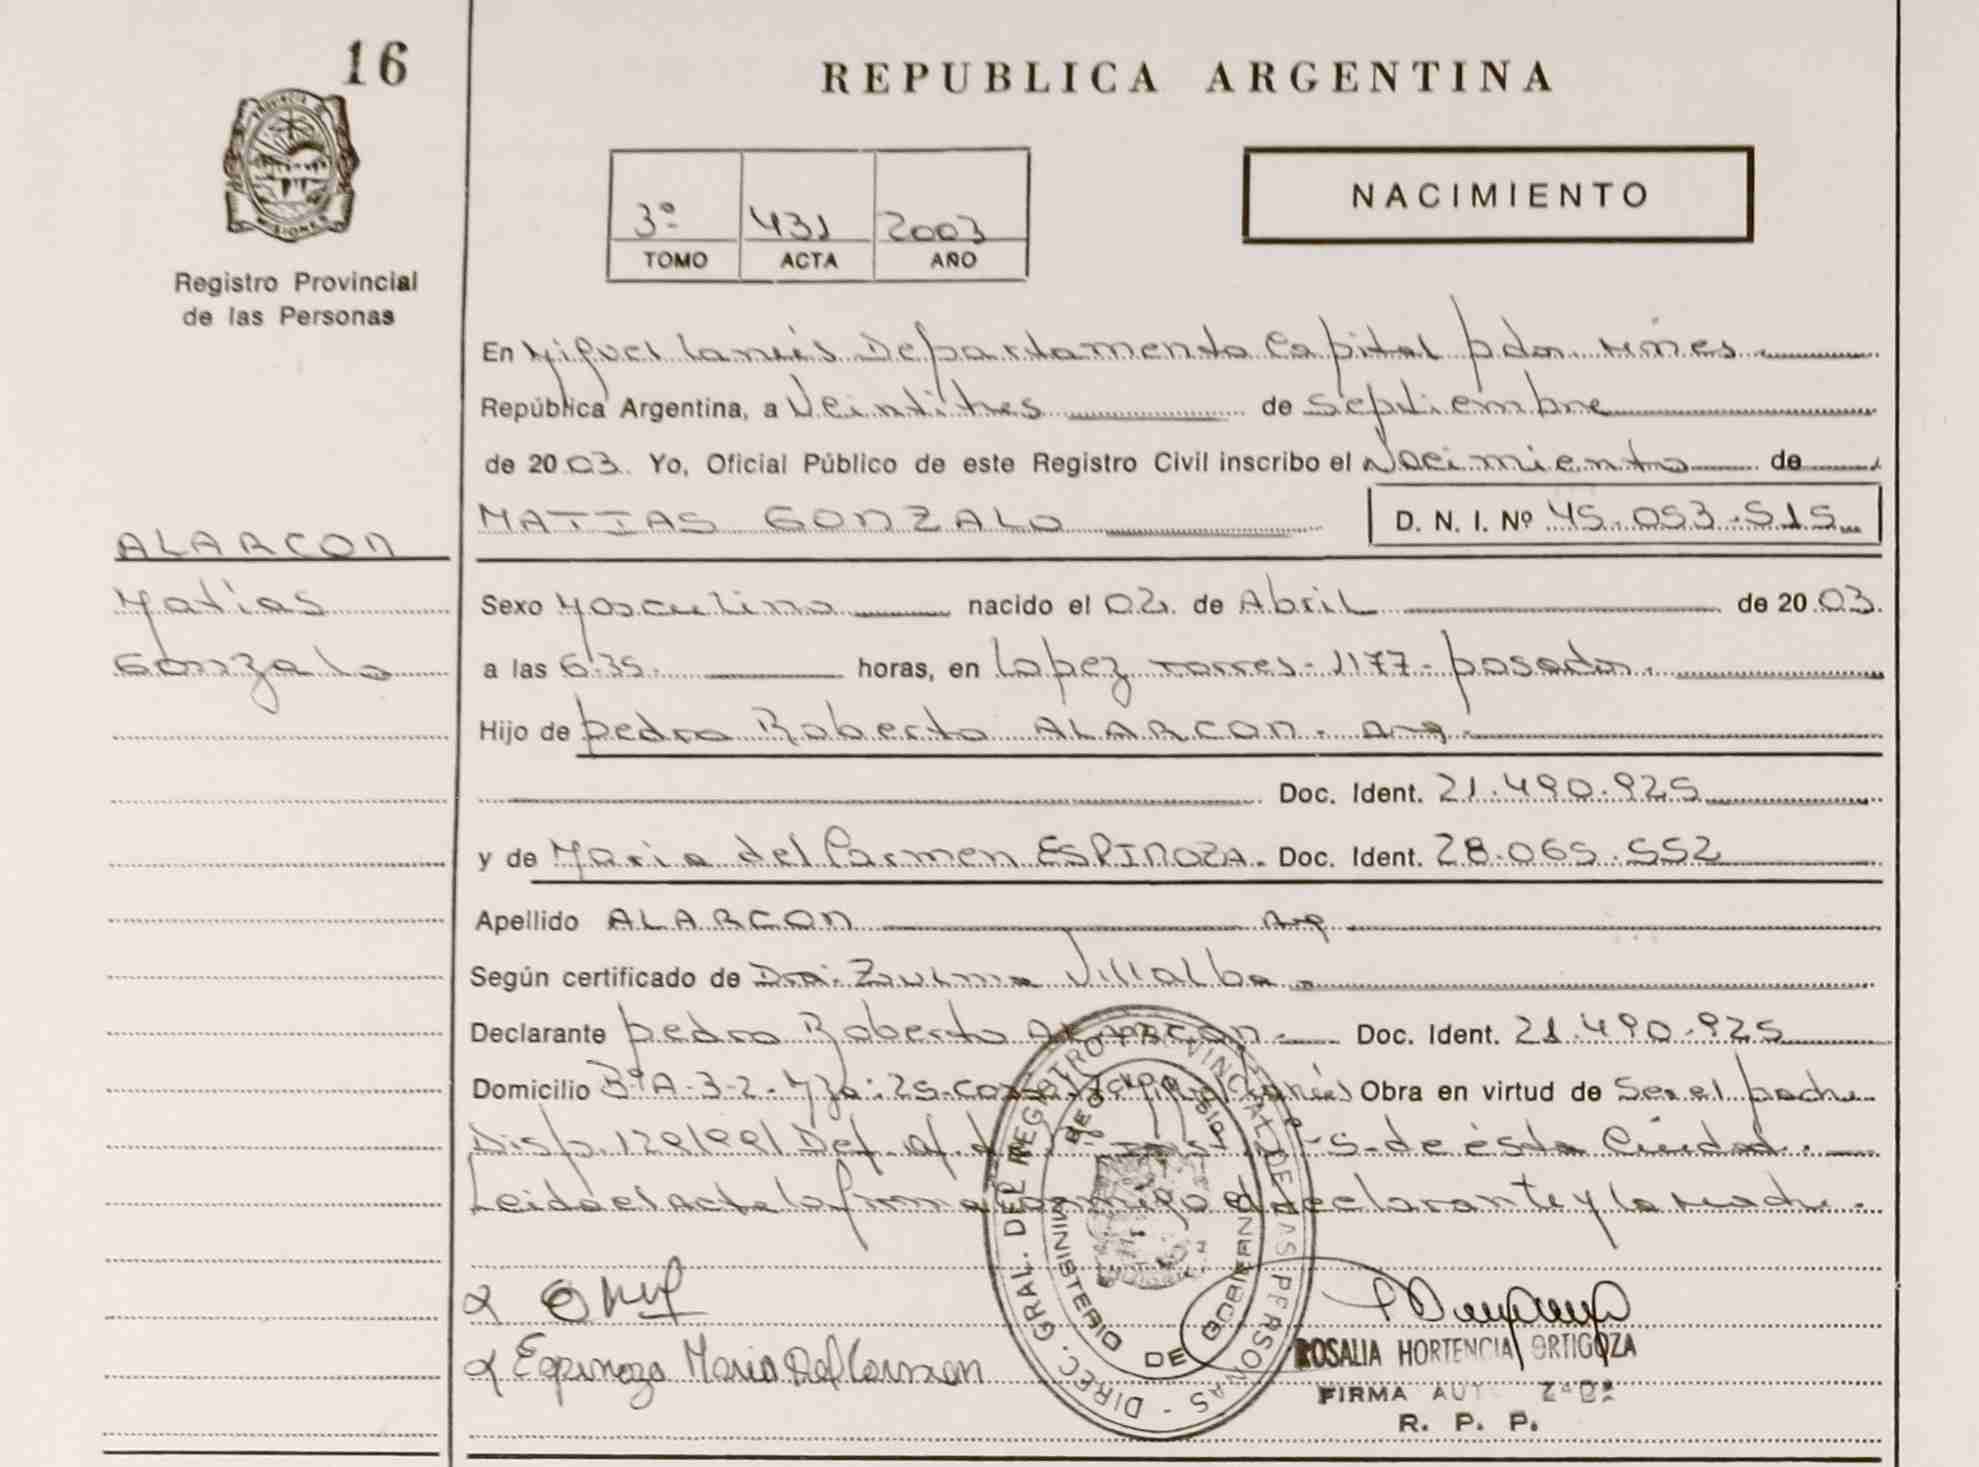 16
REPUBLICA ARGENTINA
Registro Provincial
de las Personas
3º 431 2003
TOMO ACTA AÑO
NACIMIENTO
En Miguel Lanús Departamento Capital pdas. Mnes
República Argentina, a Veintitres de septiembre
de 2003. Yo, Oficial Público de este Registro Civil inscribo el Nacimiento de
MATIAS GONZALO D. N. I. Nº 45.053.515
ALARCON
Matías
Gonzalo
Sexo Masculino nacido el 02 de Abril de 2003.
a las 6.35. horas, en Lopez Torres - 1177 - posadas.
Hijo de pedro Roberto ALARCON. Arg.
Doc. Ident. 21.490.925
y de Maria del Carmen ESPINOZA. Doc. Ident. 28.065.552
Apellido ALARCON Arg
Según certificado de Dra. Zulma Villalba
Declarante pedro Roberto ALARCON. Doc. Ident. 21.490.925
Domicilio BºA-3-2. Mza: 25. Casa Obra en virtud de Ser el padre
Disp. de ésta Ciudad.
Leida el Acta la firma conmigo el declarante y la madre.
Espinoza Maria Del Carmen
DIREC. GRAL. DEL REGISTRO PROVINCIAL DE LAS PERSONAS
MINISTERIO DE GOBIERNO
ROSALIA HORTENCIA ORTIGOZA
FIRMA
R. P. P.